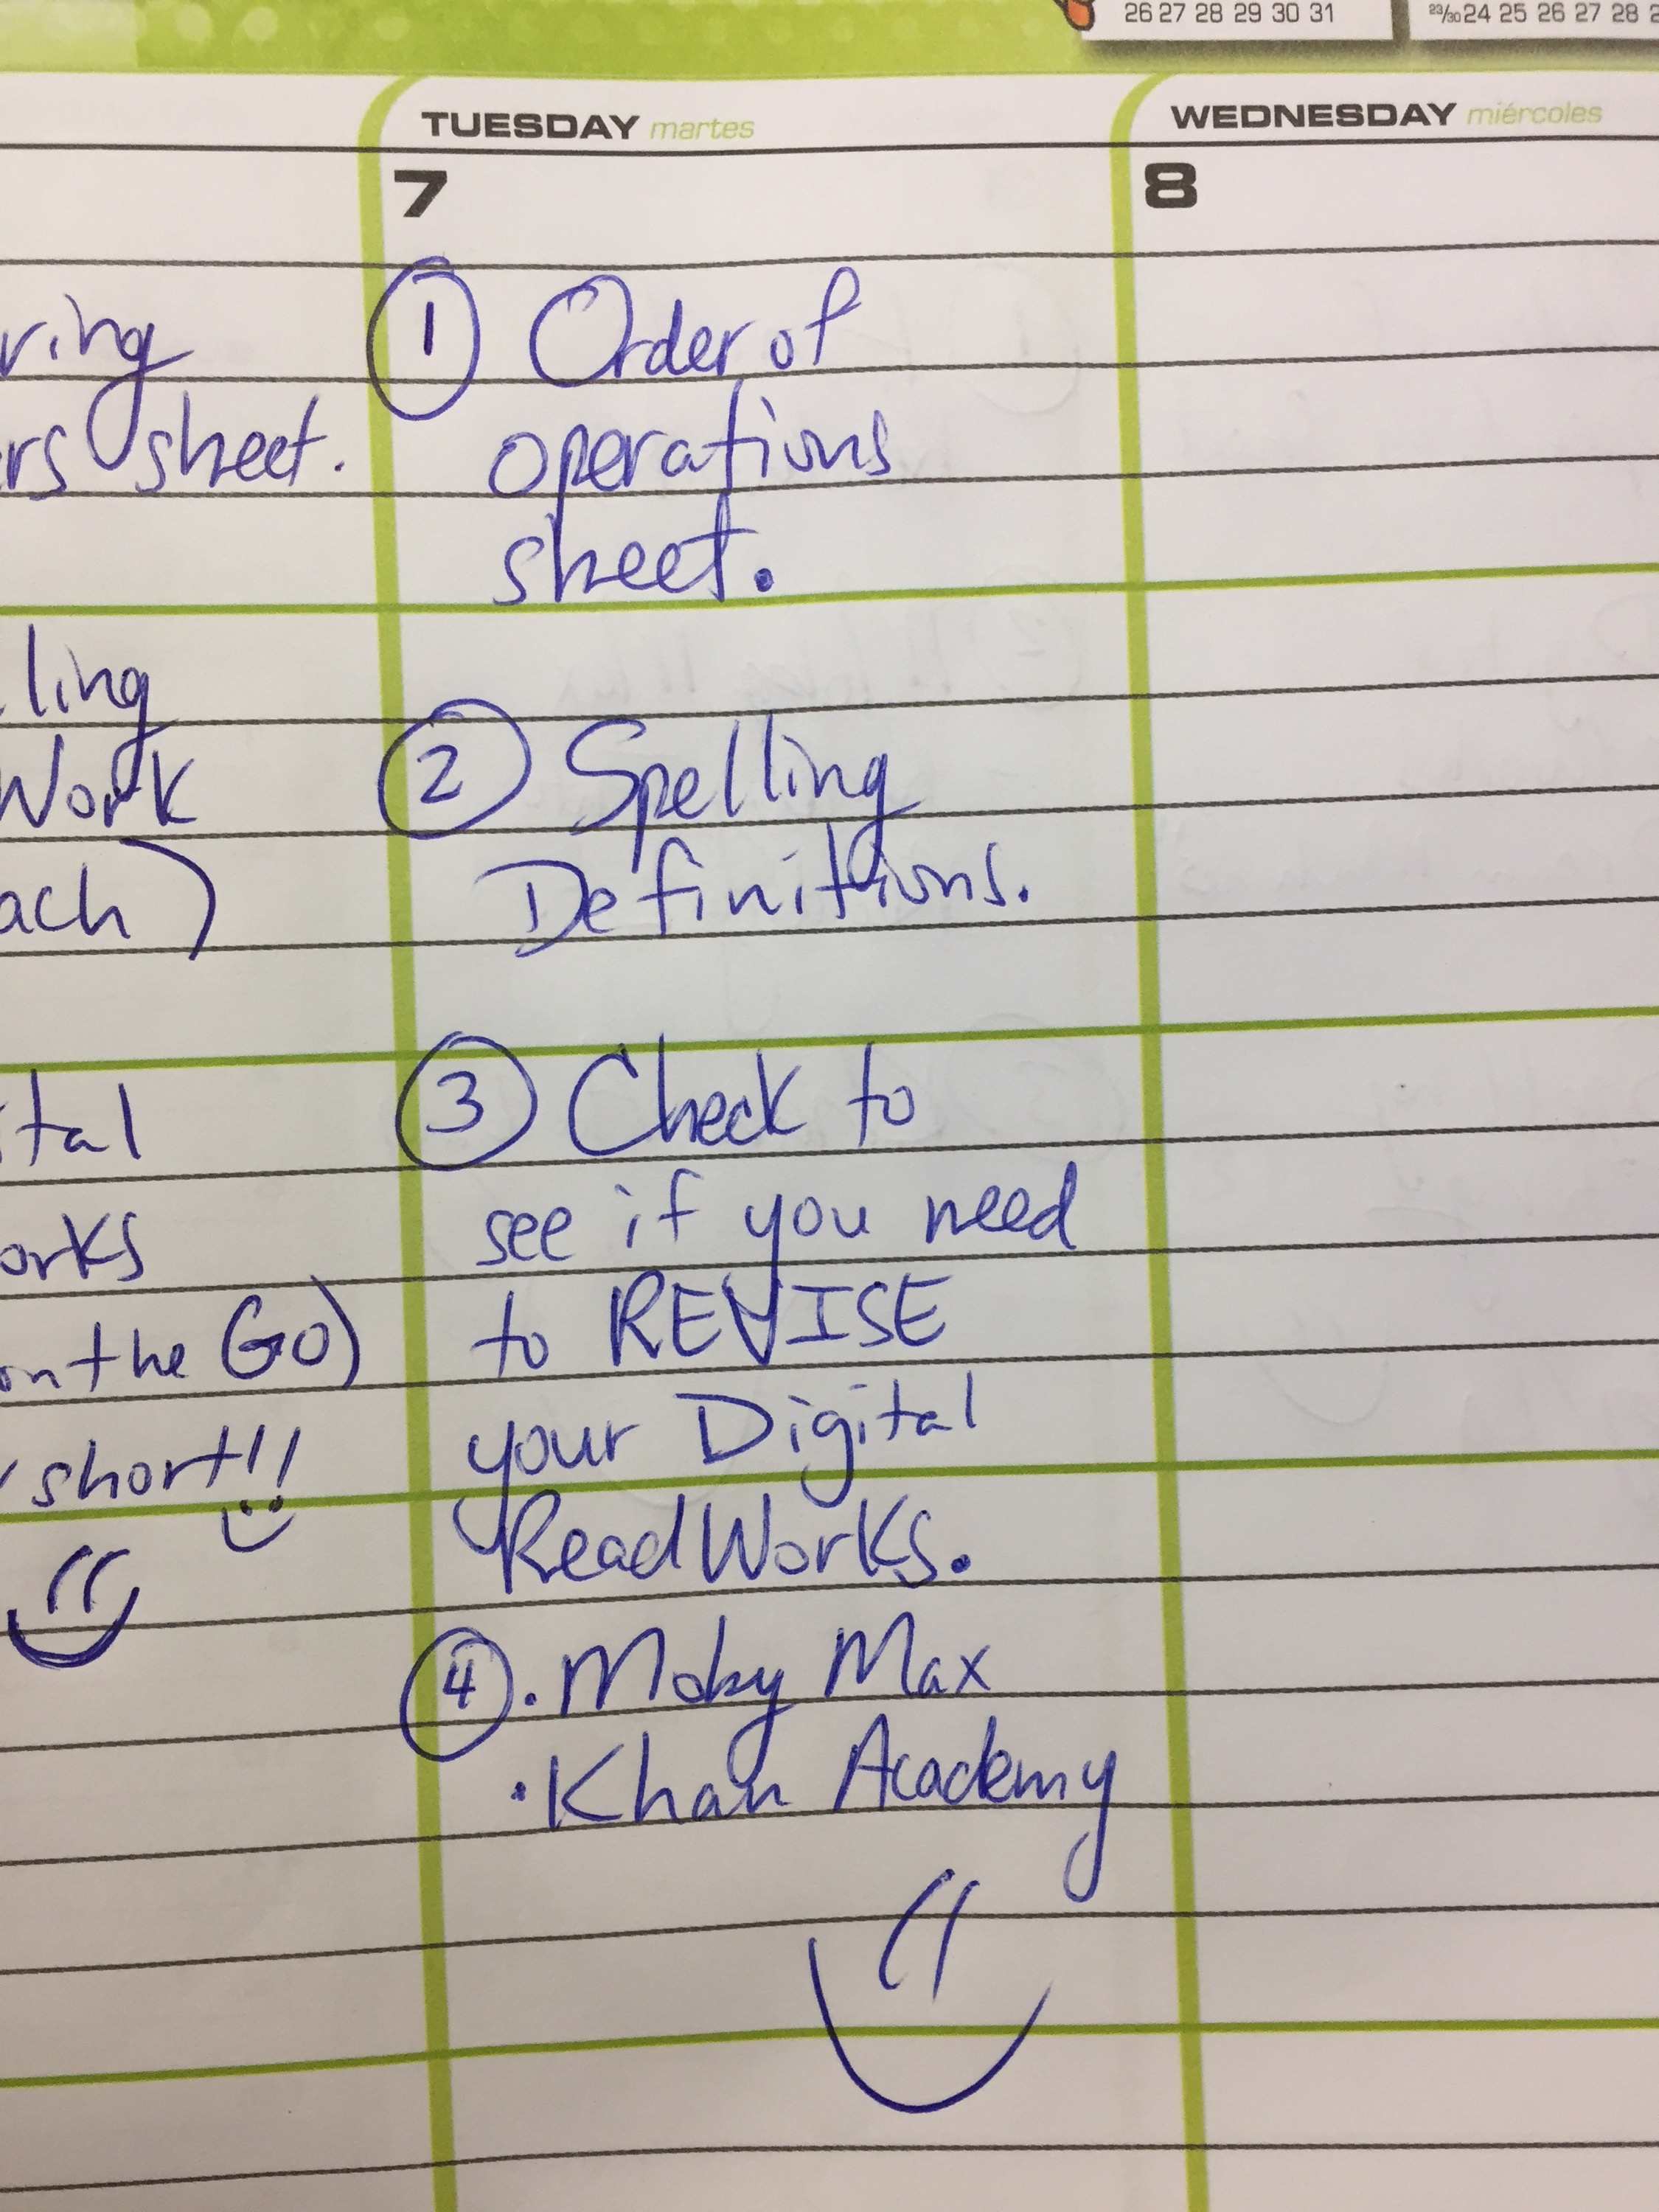 26 27 28 29 30 31
23/30 24 25 26 27 28
TUESDAY martes
WEDNESDAY miércoles
7
8
ring
rs sheet.
ling
Work
ach)
tal
orks
on the Go)
short!!
① Order of
operations
sheet.
② Spelling
Definitions.
③ Check to
see if you need
to REVISE
your Digital
ReadWorks.
④ • Moby Max
• Khan Academy